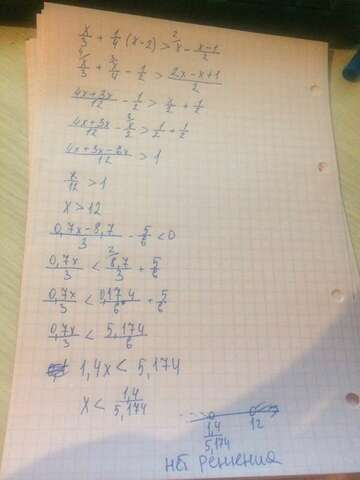 x/3 + 1/4 (x-2) > x - x-1/2
4 x/3 + 3 x/4 - 1/2 > 2x-x+1/2
4x+3x/12 - 1/2 > x/2 + 1/2
4x+3x/12 - x/2 > 1/2 + 1/2
4x+3x-6x/12 > 1
x/12 > 1
x > 12
0,7x-8,7/3 - 5/6 < 0
0,7x/3 < 8,7/3 + 5/6
0,7x/3 < 0,174/6 + 5/6
0,7x/3 < 5,174/6
1,4x < 5,174
x < 1,4/5,174
1,4/5,174 12
нет решения